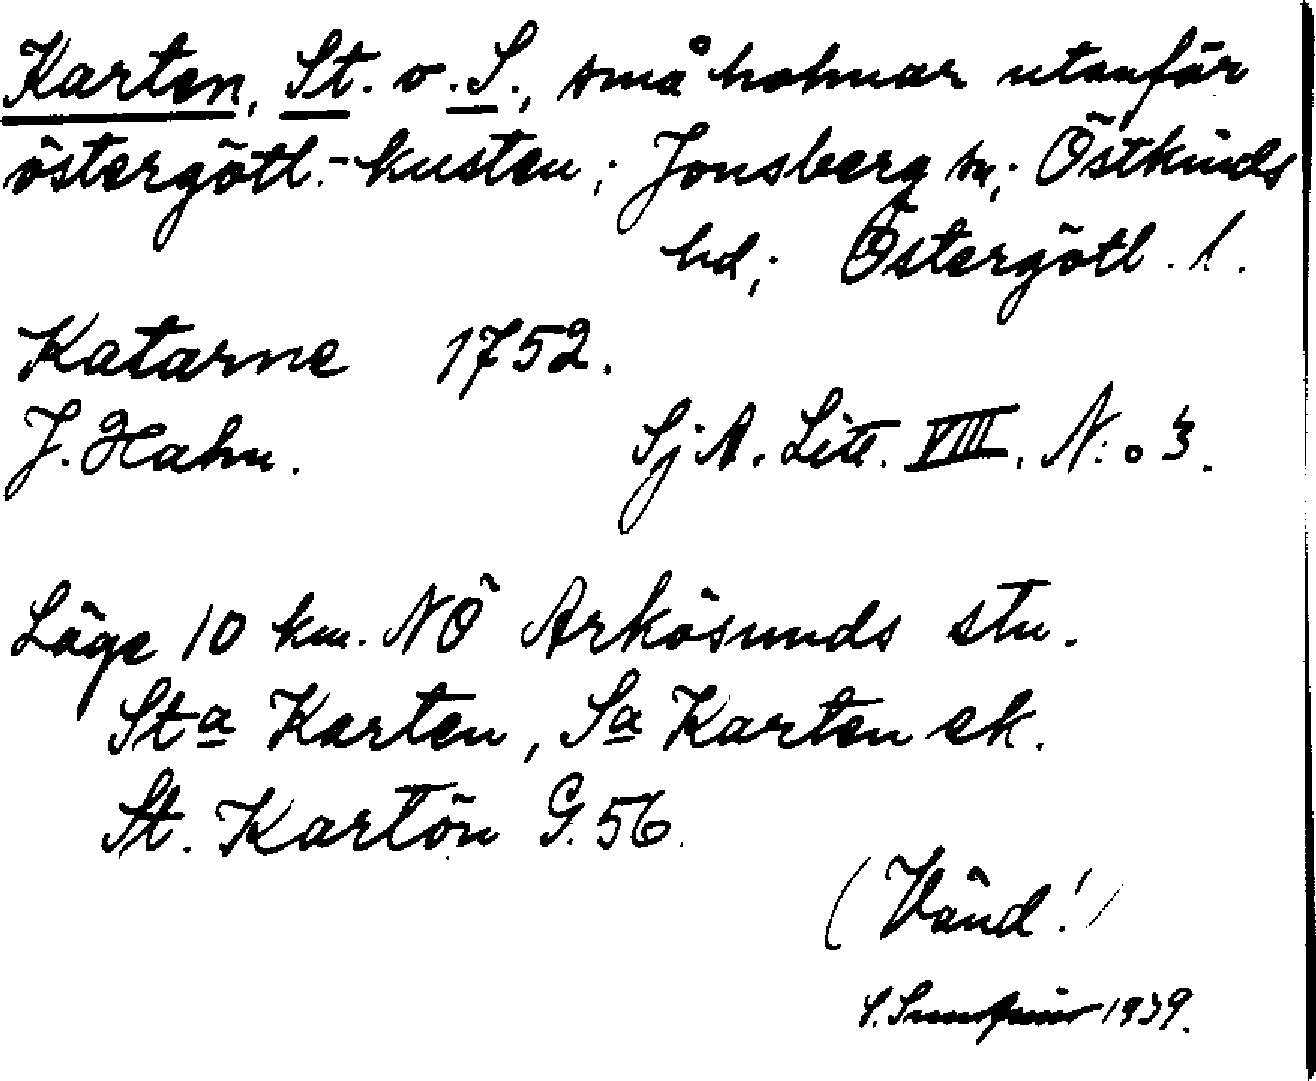 Karten, St. o. S., små holmar utanför
östergötl.-kusten; Jonsberg sn; Östkinds
hd; Östergötl. l.
Katarne 1752.
J. Hahn. SjA. Litt. VIII. N:o 3.
Läge 10 km. NÖ Arkösunds stn.
Sta Karten, Sa Karten ek.
St. Kartön G. 56.
(Vänd!)
1939.